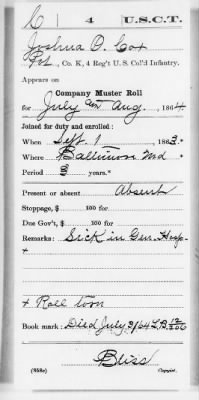 C | 4 | U.S.C.T.
Joshua O. Cox
Pvt, Co. K, 4 Reg't U. S. Col'd Infantry.
Appears on
Company Muster Roll
for July and Aug, 1864
Joined for duty and enrolled:
When Sept. 1, 1863.
Where Baltimore Md
Period 3 years.*
Present or absent Absent
Stoppage, $ 100 for
Due Gov't, $ 100 for
Remarks: Sick in Gen. Hosp
+
+ Roll torn
Book mark: Died July 3/64
Bliss
(858c) Copyist.